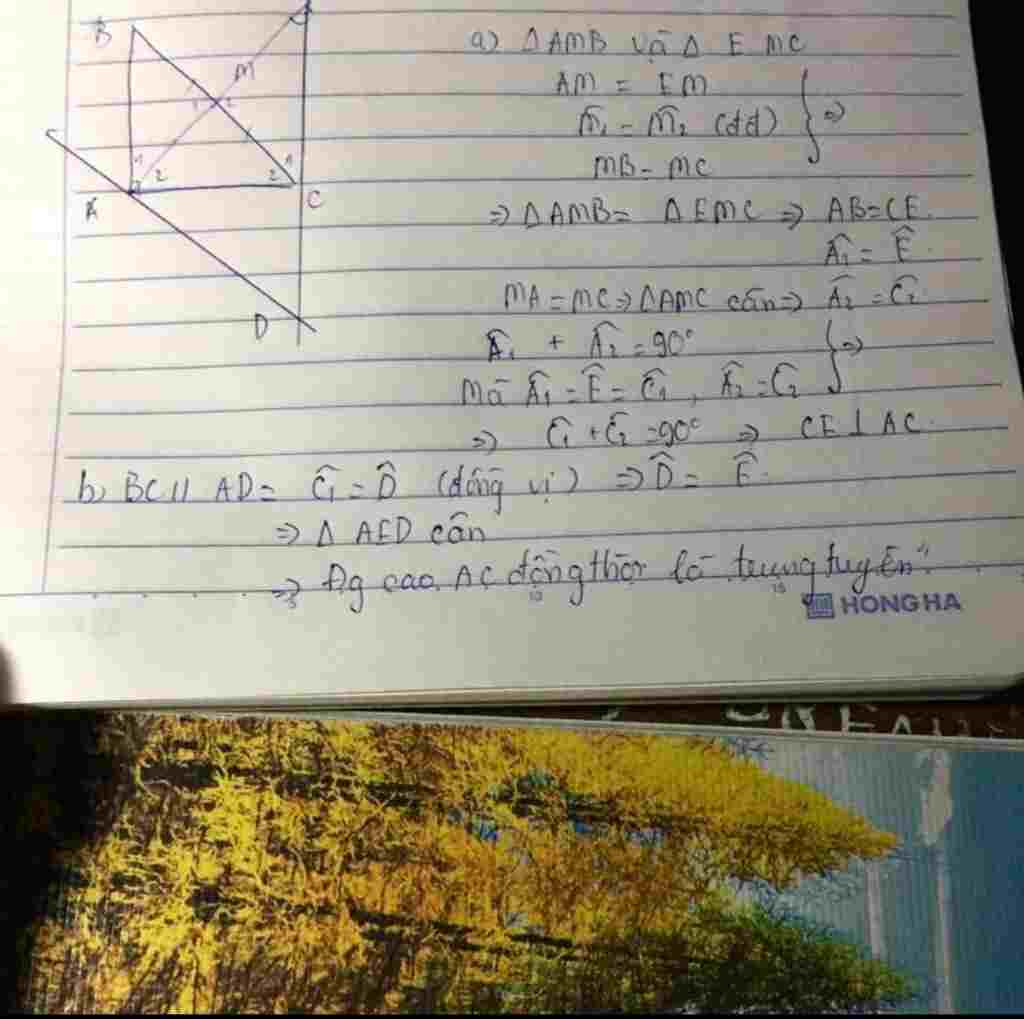 B
M
1 2
1
2
1
2
A
C
D
a) Δ AMB và Δ EMC
AM = EM
M̂₁ = M̂₂ (đđ) } =>
MB = MC
=> Δ AMB = Δ EMC => AB = CE.
Â₁ = Ê.
MA = MC => Δ AMC cân => Â₂ = Ĉ₂
Â₁ + Â₂ = 90° } =>
Mà Â₁ = Ê = Ĉ₁, Â₂ = Ĉ₂
=> Ĉ₁ + Ĉ₂ = 90° => CE ⊥ AC.
b) BC // AD = Ĉ₁ = D̂ (đồng vị) => D̂ = Ê.
=> Δ AED cân
=> Đg cao AC đồng thời là trung tuyến"
10
15
HONG HA